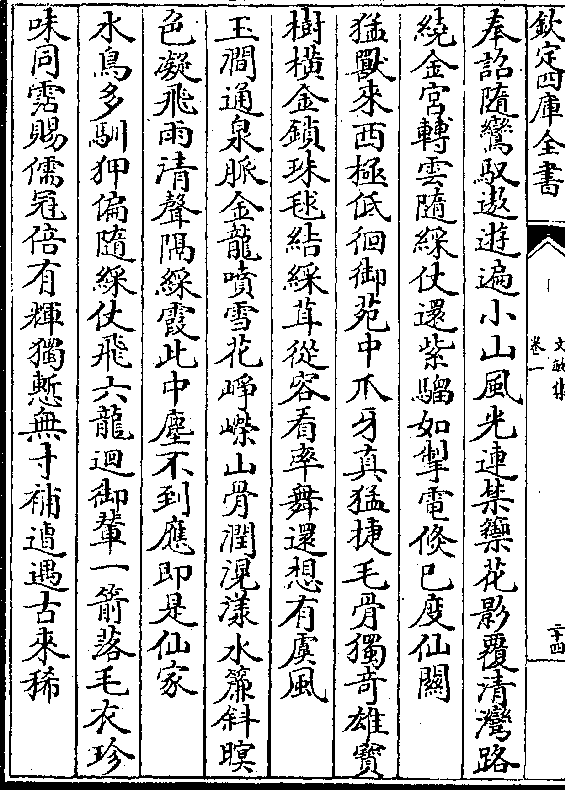 欽定四庫全書
文敏集
卷一
二十四
奉詔隨鸞馭遨遊遍小山風光連禁籞花影覆清灣路
繞金宮轉雲隨綵仗還紫騮如掣電倐已度仙關
猛獸來西極低徊御苑中爪牙真猛捷毛骨獨奇雄寳
樹横金鎖珠毬結綵茸從容看率舞還想有虞風
玉澗通泉脈金龍噴雪花崢嶸山骨潤滉漾水簾斜暝
色凝飛雨清聲隔綵霞此中塵不到應即是仙家
水鳥多馴狎偏隨綵仗飛六龍迴御輦一箭落毛衣珍
味同霑賜儒冠倍有輝獨慙無寸補遭遇古來稀